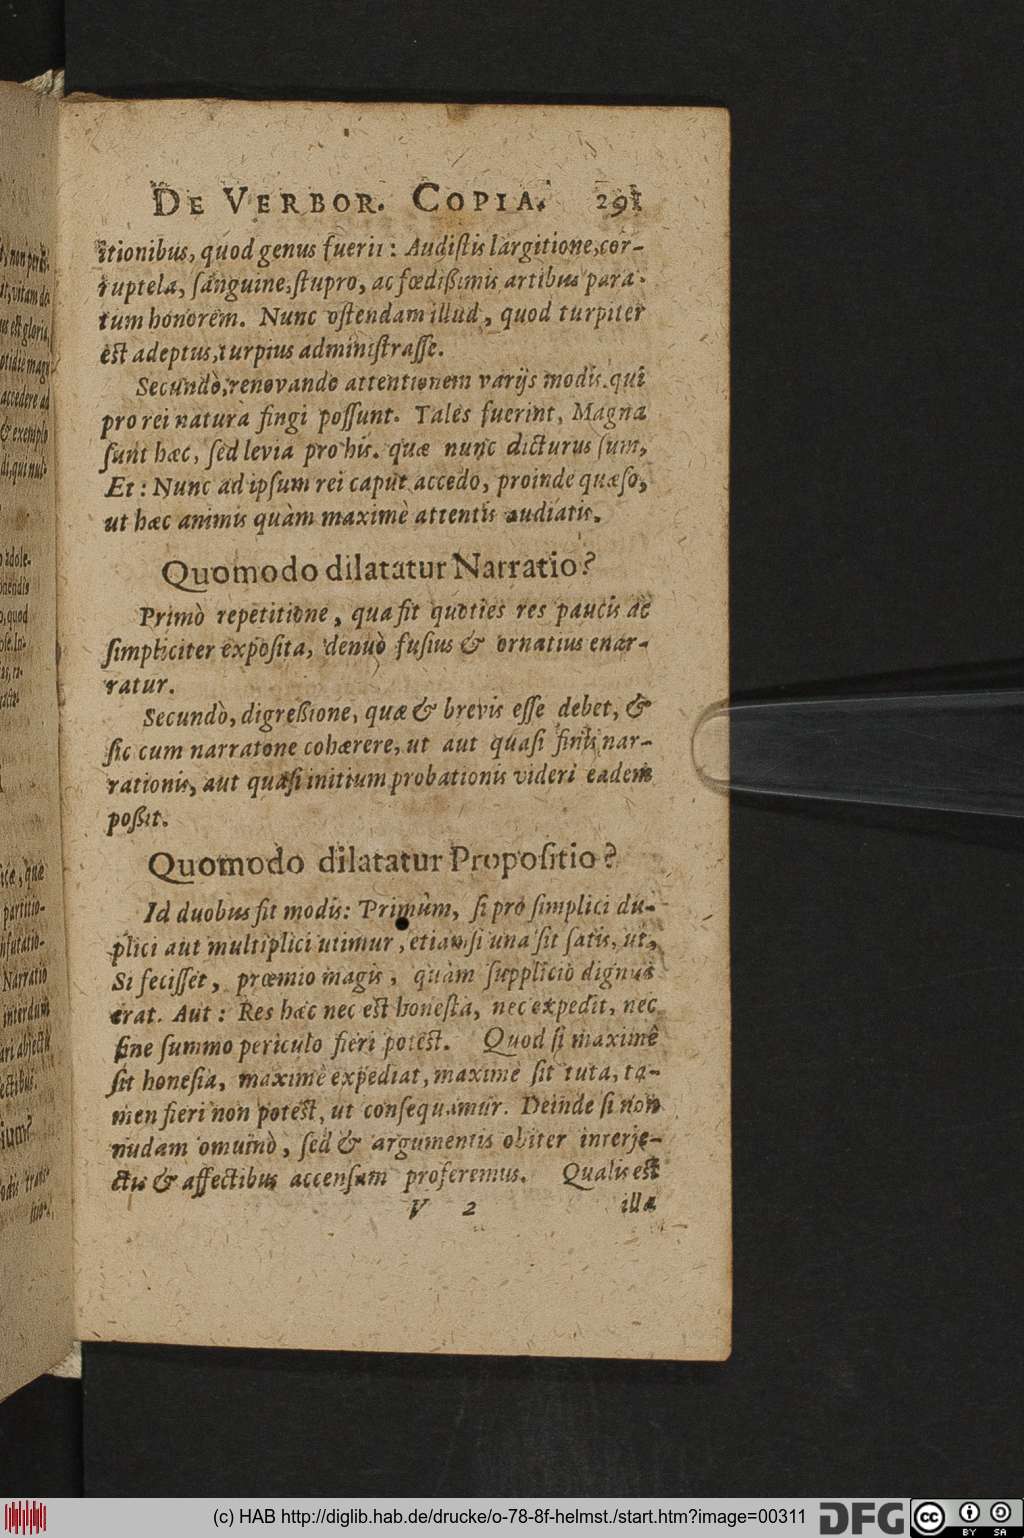 DE VERBOR. COPIA. 291
itionibus, quod genus fuerit: Audistis largitione, cor-
ruptela, sanguine, stupro, ac fœdißimis artibus para-
tum honorem. Nunc ostendam illud, quod turpiter
est adeptus, turpius administrasse.
Secundò, renovando attentionem varijs modis. qui
pro rei natura fingi possunt. Tales fuerint, Magna
sunt hæc, sed levia pro his. quæ nunc dicturus sum,
Et: Nunc ad ipsum rei caput accedo, proinde quæso,
ut hæc animis quàm maximè attentis audiatis.
Quomodo dilatatur Narratio?
Primò repetitione, qua fit quoties res paucis ac
simpliciter exposita, denuò fusius & ornatius enar-
ratur.
Secundò, digreßione, quæ & brevis esse debet, &
sic cum narratone cohærere, ut aut quasi finis nar-
rationis, aut quasi initium probationis videri eadem
poßit.
Quomodo dilatatur Propositio?
Id duobus fit modis: Primùm, si pro simplici du-
plici aut multiplici utimur, etiamsi una sit satis, ut,
Si fecisset, præmio magis, quàm supplicio dignus
erat. Aut: Res hæc nec est honesta, nec expedit, nec
sine summo periculo fieri potest. Quod si maximè
sit honesta, maximè expediat, maximè sit tuta, ta-
men fieri non potest, ut consequamur. Deinde si non
nudam omuinò, sed & argumentis obiter interje-
ctis & affectibus accensam proferemus. Qualis est
V 2 illa
(c) HAB http://diglib.hab.de/drucke/o-78-8f-helmst./start.htm?image=00311
DFG
cc BY SA